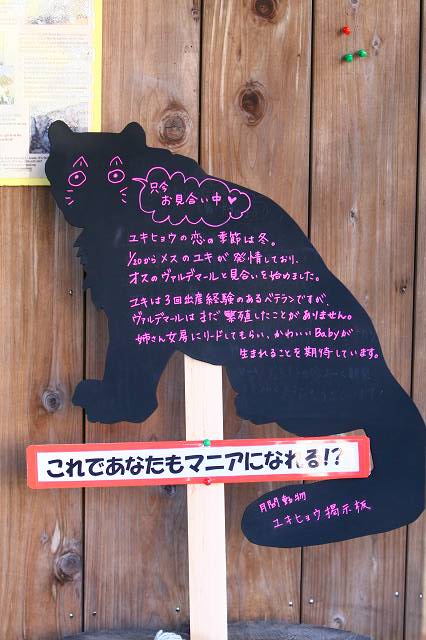 只今
お見合い中♥
ユキヒョウの恋の季節は冬。
1/20からメスのユキが発情しており、
オスのヴァルデマールと見合いを始めました。
ユキは3回出産経験のあるベテランですが、
ヴァルデマールはまだ繁殖したことがありません。
姉さん女房にリードしてもらい、かわいいBabyが
生まれることを期待しています。
これであなたもマニアになれる!?
月間動物
ユキヒョウ掲示板